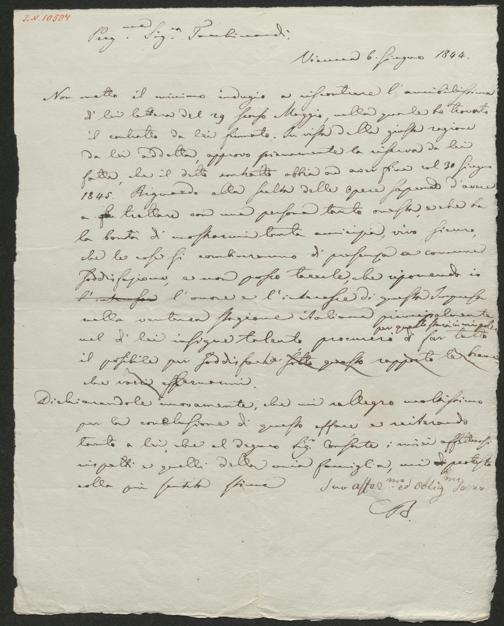 I.N. 10504
Preg.ma Sig.ra Tadolinandi:
Vienna 6. Giugno 1844.
Non metto il minimo indugio a riscontrare l'amabilissima
di lei lettera del 29 scorso Maggio, nella quale ho trovato
il contratto da lei firmato. In vista della giusta ragione
da lei addotta, approvo pienamente la riserva da lei
fatta, che il detto contratto abbia ad aver fine col 30 Giugno
1845. Riguardo alla scelta delle opere sapendo d'avere
a trattare con una persona tanto onesta, e che ha
la bontà di mostrarmi tanta amicizia vivo sicuro,
che le cose si combineranno di presenza a comune
soddisfazione, e non posso tacerle che riponendo io
l'onore e l'interesse di questa Impresa
nella ventura stagione italiana principalmente
nel di lei insigne talento procurerò di far tutto
per quanto starà in me
il possibile per soddisfarla sotto questo rapporto le brame
che vorrà esternarmi.
Dichiarandole sinceramente, che mi rallegro moltissimo
per la conclusione di questo affare e reiterando
tanto a lei, che al degno Sig. Consorte i miei affettuosi
rispetti e quelli della mia famiglia, mi protesto
colla più sentita stima
Suo affez.mo ed obblig.mo Servo
B.